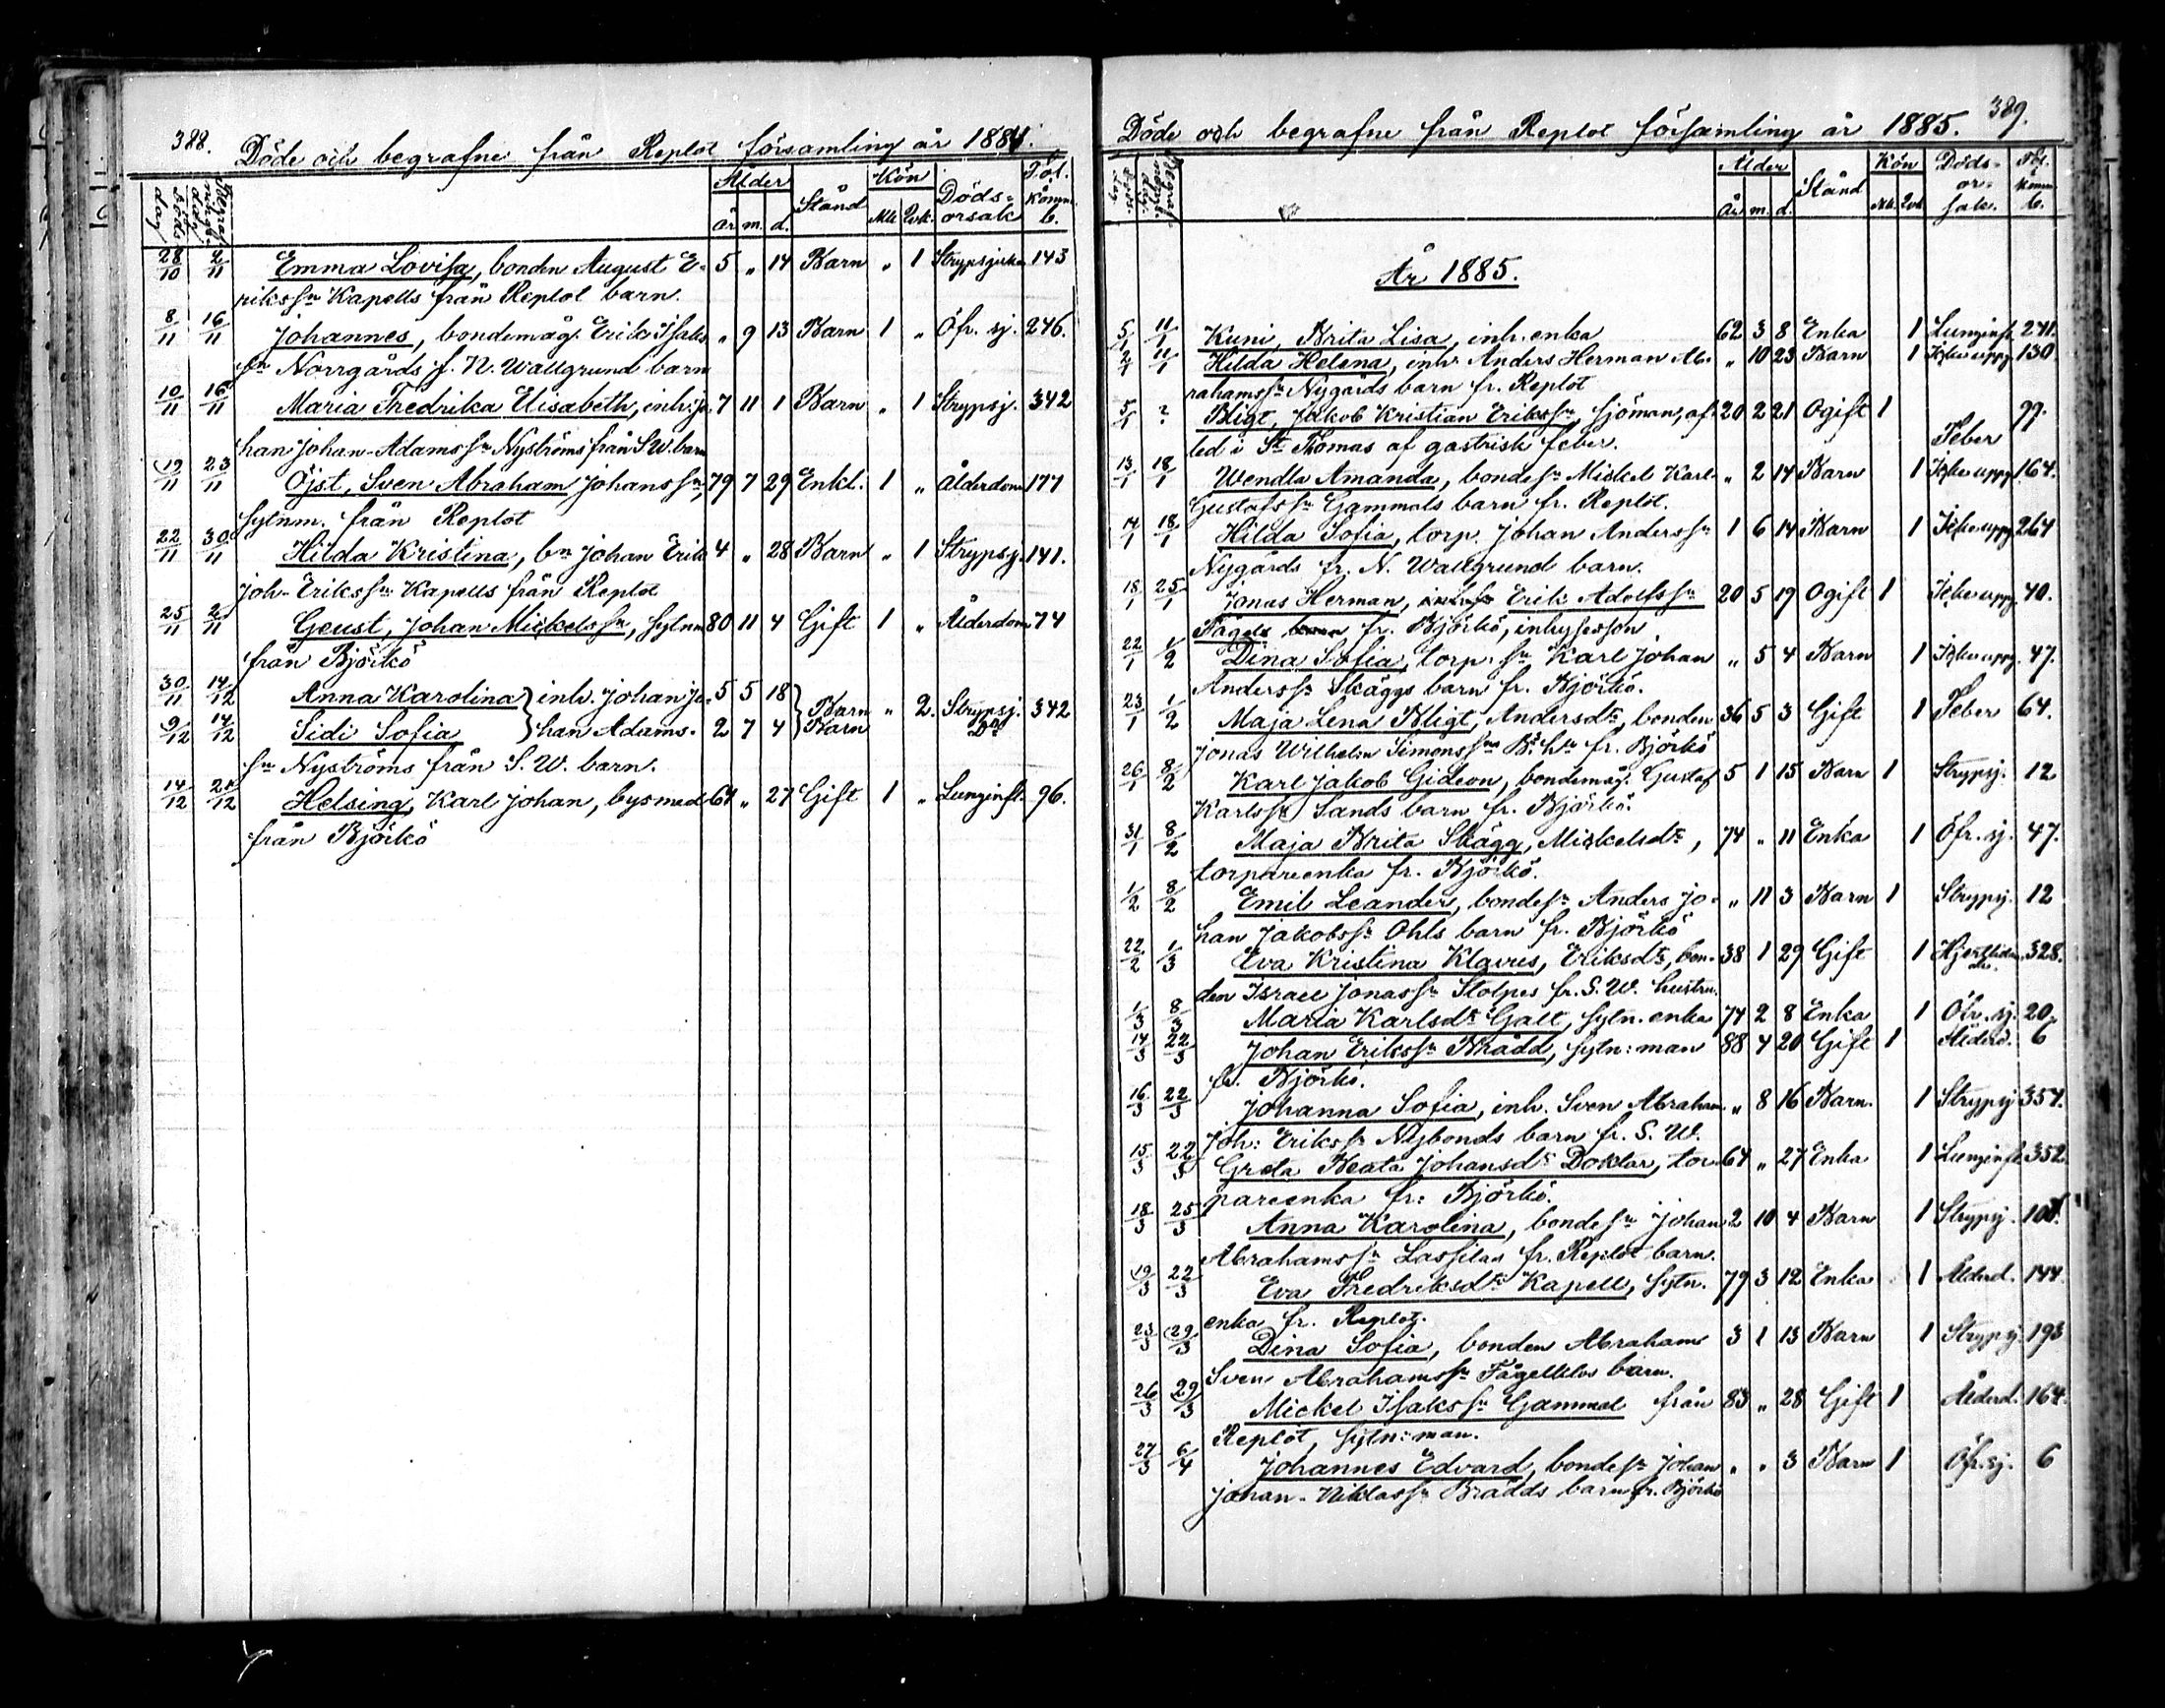 388.
Döde och begrafne från Replot församling år 1884.
Döds dag
Begrafnings dag
Ålder
År m. d.
Stånd
Kön
Mk. Qvk.
Döds-orsak
Fol. Komm. b.
28/10 2/11 Emma Lovisa, bonden August E- 5 " 14 Barn " 1 Strypsjuka 143
rikssn Kapells från Replot barn.
8/11 16/11 Johannes, bondemåg. Erik Isaks " 9 13 Barn 1 " Öfr. sj. 246.
sn Norrgårds f. N. Wallgrund barn
10/11 16/11 Maria Fredrika Elisabeth, inh: Jo- 7 11 1 Barn " 1 Strypsj. 342
han Johan-Adamssn Nyströms från S.W. barn
19/11 23/11 Öjst, Sven Abraham Johanssn, 79 7 29 Enkl. 1 " Ålderdom 177
sytnm. från Replot
22/11 30/11 Hilda Kristina, bn Johan Erik 4 " 28 Barn " 1 Strypsj. 141.
Joh-Erikssn Kapells från Replot
25/11 2/11 Geust, Johan Mickelssn, sytnm 80 11 4 Gift 1 " Ålderdom 74
från Björkö
30/11 14/12 Anna Karolina } inh. Johan Jo- 5 5 18 } Barn " 2. Strypsj. 342
9/12 14/12 Sidi Sofia } han Adams- 2 7 4 } Barn Do
sn Nyströms från S. W. barn.
14/12 21/12 Helsing, Karl Johan, bysmed 64 " 27 Gift 1 " Lunginfl. 96.
från Björkö
389.
Döde och begrafne från Replot församling år 1885.
Ålder
År m. d.
Stånd
Kön
Mk. Qvk.
Döds-or-sak.
Fol. Komm. b.
År 1885.
5/1 11/1 Kuni, Brita Lisa, inh. enka 62 3 8 Enka 1 Lunginfl. 271.
2/1 11/1 Hilda Helena, inh. Anders Herman Ab- " 10 23 Barn 1 Icke uppg. 130
rahamssn Nygårds barn fr. Replot
5/1 ? Bligt, Jakob Kristian Erikssn, sjöman, af- 20 2 21 Ogift 1 Feber 99.
led i St Thomas af gastrisk feber.
13/1 18/1 Wendla Amanda, bondesn Mickel Karl- " 2 14 Barn 1 Icke uppg. 164.
Gustafssn Gammals barn fr. Replot.
14/1 18/1 Hilda Sofia, torp. Johan Anderssn 1 6 14 Barn 1 Icke uppg. 264
Nygårds fr. N. Wallgrund barn.
18/1 25/1 Jonas Herman, Erik Adolfssn 20 5 19 Ogift 1 Icke uppg. 40.
Fågel fr. Björkö, inhysesson
22/1 1/2 Dina Sofia, torp: sn Karl Johan " 5 4 Barn 1 Icke uppg. 47.
Anderssn Skäggs barn fr. Björkö.
23/1 1/2 Maja Lena Bligt, Andersdtr, bonden 36 5 3 Gift 1 Feber 64.
Jonas Wilhelm Simonssns Bs. hu fr. Björkö
26/1 8/2 Karl Jakob Gideon, bondemåg. Gustaf 5 1 15 Barn 1 Strypsj. 12
Karlssn Sands barn fr. Björkö.
31/1 8/2 Maja Brita Skägg, Mickelsdtr, 74 " 11 Enka 1 Öfr. sj. 47.
torpareenka fr. Björkö.
1/2 8/2 Emil Leander, bondesn Anders Jo- " 11 3 Barn 1 Strypsj. 12
han Jakobssn Ohls barn fr. Björkö
22/2 1/3 Eva Kristina Klavus, Eriksdtr, bon- 38 1 29 Gift 1 Hjertlidande. 328.
den Israel Jonassn Stolpes fr. S. W. hustru.
1/3 8/3 Maria Karlsdtr Galt, sytn. enka 74 2 8 Enka 1 Öfr. sj. 20.
14/3 22/3 Johan Erikssn Brådd, sytn: man 88 4 20 Gift 1 Ålderd. 6
fr. Björkö.
16/3 22/3 Johanna Sofia, inh. Sven Abraham " 8 16 Barn. 1 Strypsj. 354.
Joh: Erikssn Nybonds barn fr. S. W.
15/3 22/3 Greta Beata Johansdtr Doktar, tor- 64 " 27 Enka 1 Lunginfl. 352.
pareenka fr: Björkö.
18/3 25/3 Anna Karolina, bondesn Johan 2 10 4 Barn 1 Strypsj.
Abrahamssn Lassilas fr. Replot barn.
19/3 22/3 Eva Fredriksdtr Kapell, sytn. 79 3 12 Enka 1 Ålderd. 144.
enka fr. Replot.
23/3 29/3 Dina Sofia, bonden Abraham 3 1 13 Barn 1 Strypsj. 193
Sven Abrahamssn barn.
26/3 29/3 Mickel Isakssn Gammal från 83 " 28 Gift 1 Ålderd. 164.
Replot, sytn: man.
27/3 6/4 Johannes Edvard, bondesn Johan " " 3 Barn 1 Öfr. sj. 6
Johan-Niklassn Brådds barn fr. Björkö